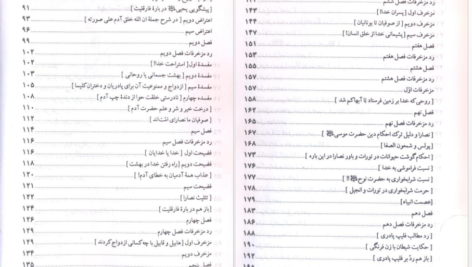 [ پیشگویی یحیی در بارهٔ فارقلیت ] ۹۱
اعتراض دویم [ در شرح جملهٔ ان الله خلق آدم علی صورته ] ۹۴
اعتراض سیم ۹۶
فصل دویم ۹۹
رد مزخرفات فصل دویم ۱۰۲
مفسدهٔ اول [ استراحت خدا ] ۱۰۲
مفسدهٔ دویم [ بهشت جسمانی یا روحانی ] ۱۰۳
مفسدهٔ سیم [ ازدواج و ممنوعیت آن برای پادریان و دختران کلیسا ] ۱۰۵
مفسده چهارم [ نادرستی خلقت حوا از دندهٔ چپ آدم ] ۱۰۷
درخت خیر و شر و علم حضرت آدم ۱۱۰
صوفیان ما نصارای امّت‌اند ۱۱۲
فصل سیم ۱۱۴
رد مزخرفات فصل سیم ۱۱۶
فضیحت اول [ خدا یا خدایان ] ۱۱۶
فضیحت دویم [ راه رفتن خدا در بهشت ] ۱۱۸
[ عذاب همهٔ آدمیان به خطای آدم ] ۱۲۰
فضیحت سیم ۱۲۱
تثلیث نصارا ۱۲۲
[ باز هم در بارهٔ فارقلیت ] ۱۲۴
فصل چهارم ۱۲۶
رد مزخرفات فصل چهارم ۱۲۹
مزخرف اول [ هابیل و قابیل با چه کسانی ازدواج کردند ] ۱۲۹
مزخرف دویم ۱۳۴
فصل پنجم ۱۳۵
۱۴۳
مزخرف اول [ پسران خدا ]
مزخرف دویم [ از صوفیان تا یونانیان ] ۱۴۷
مزخرف سیم [ پشیمانی خدا از خلق انسان ] ۱۵۱
فصل هفتم ۱۵۱
رد مزخرفات فصل هفتم ۱۵۳
فصل هشتم ۱۵۵
رد مزخرفات فصل هشتم ۱۵۷
مزخرفات اوّل ۱۵۷
[ روحی که خدا بر زمین فرستاد تا آبها کم شد ]
فصل نهم
رد مزخرفات فصل نهم
[ نصارا و دلیل ترک احکام دین حضرت موسی ] ۱۶۷
پولس و شمعون الصفا ۱۶۸
[ احکام گوشت حیوانات در تورات و باور نصارا در این باره ]
نسبت فراموشی به خدا
[ نسبت شرابخواری به حضرت نوح ] ۱۷۷
[ حرمت شرابخواری در تورات و انجیل ] ۱۷۸
عصمت انبیاء
فصل دهم ۱۸۳
رد مزخرفات فصل دهم ۱۸۶
[ رد مطالب فلیپ پادری ] ۱۸۸
[ حکایت شیطان با زن فرنگی ] ۱۹۰
[ باز هم ردّ بر فلیپ پادری ] ۱۹۲